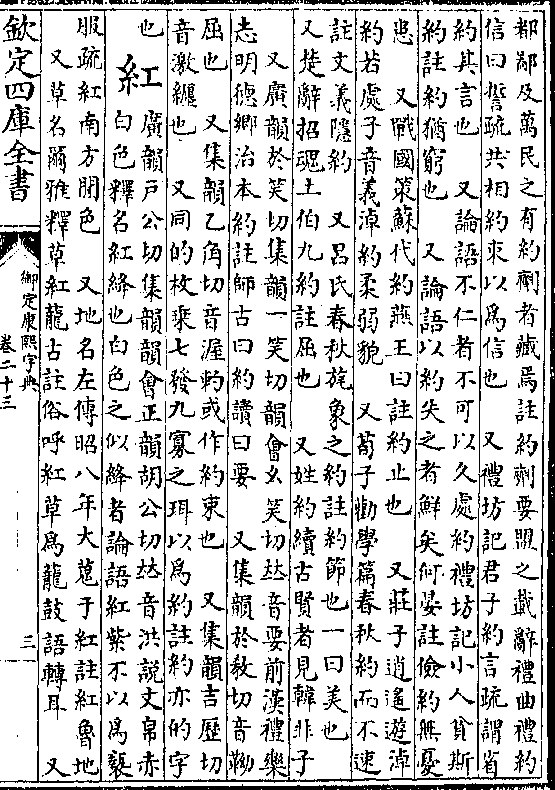 都鄙及萬民之有約劑者藏焉註約劑要盟之載辭禮曲禮約
信曰誓疏共相約束以爲信也　又禮坊記君子約言疏謂省
約其言也　又論語不仁者不可以久處約禮坊記小人貧斯
約註約猶窮也　又論語以約失之者鮮矣何晏註儉約無憂
患　又戰國策蘇代約燕王曰註約止也　又莊子逍遙遊淖
約若處子音義淖約柔弱貌　又荀子勸學篇春秋約而不速
註文義隱約　又呂氏春秋旄象之約註約節也一曰美也
又楚辭招魂土伯九約註屈也　又姓約續古賢者見韓非子
又廣韻於笑切集韻一笑切韻會幺笑切𠀤音要前漢禮樂
志明德鄉治本約註師古曰約讀曰要　又集韻於敎切音靿
屈也　又集韻乙角切音渥䊦或作約束也　又集韻吉歷切
音激纏也　又同的枚乗七發九寡之珥以爲約註約亦的字
也　紅　廣韻戸公切集韻韻會正韻胡公切𠀤音洪說文帛赤
白色釋名紅絳也白色之似絳者論語紅紫不以爲褻
服疏紅南方閒色　又地名左傳昭八年大蒐于紅註紅魯地
又草名爾雅釋草紅蘢古註俗呼紅草爲蘢鼓語轉耳　又
欽定四庫全書
御定康熙字典
卷二十三
三